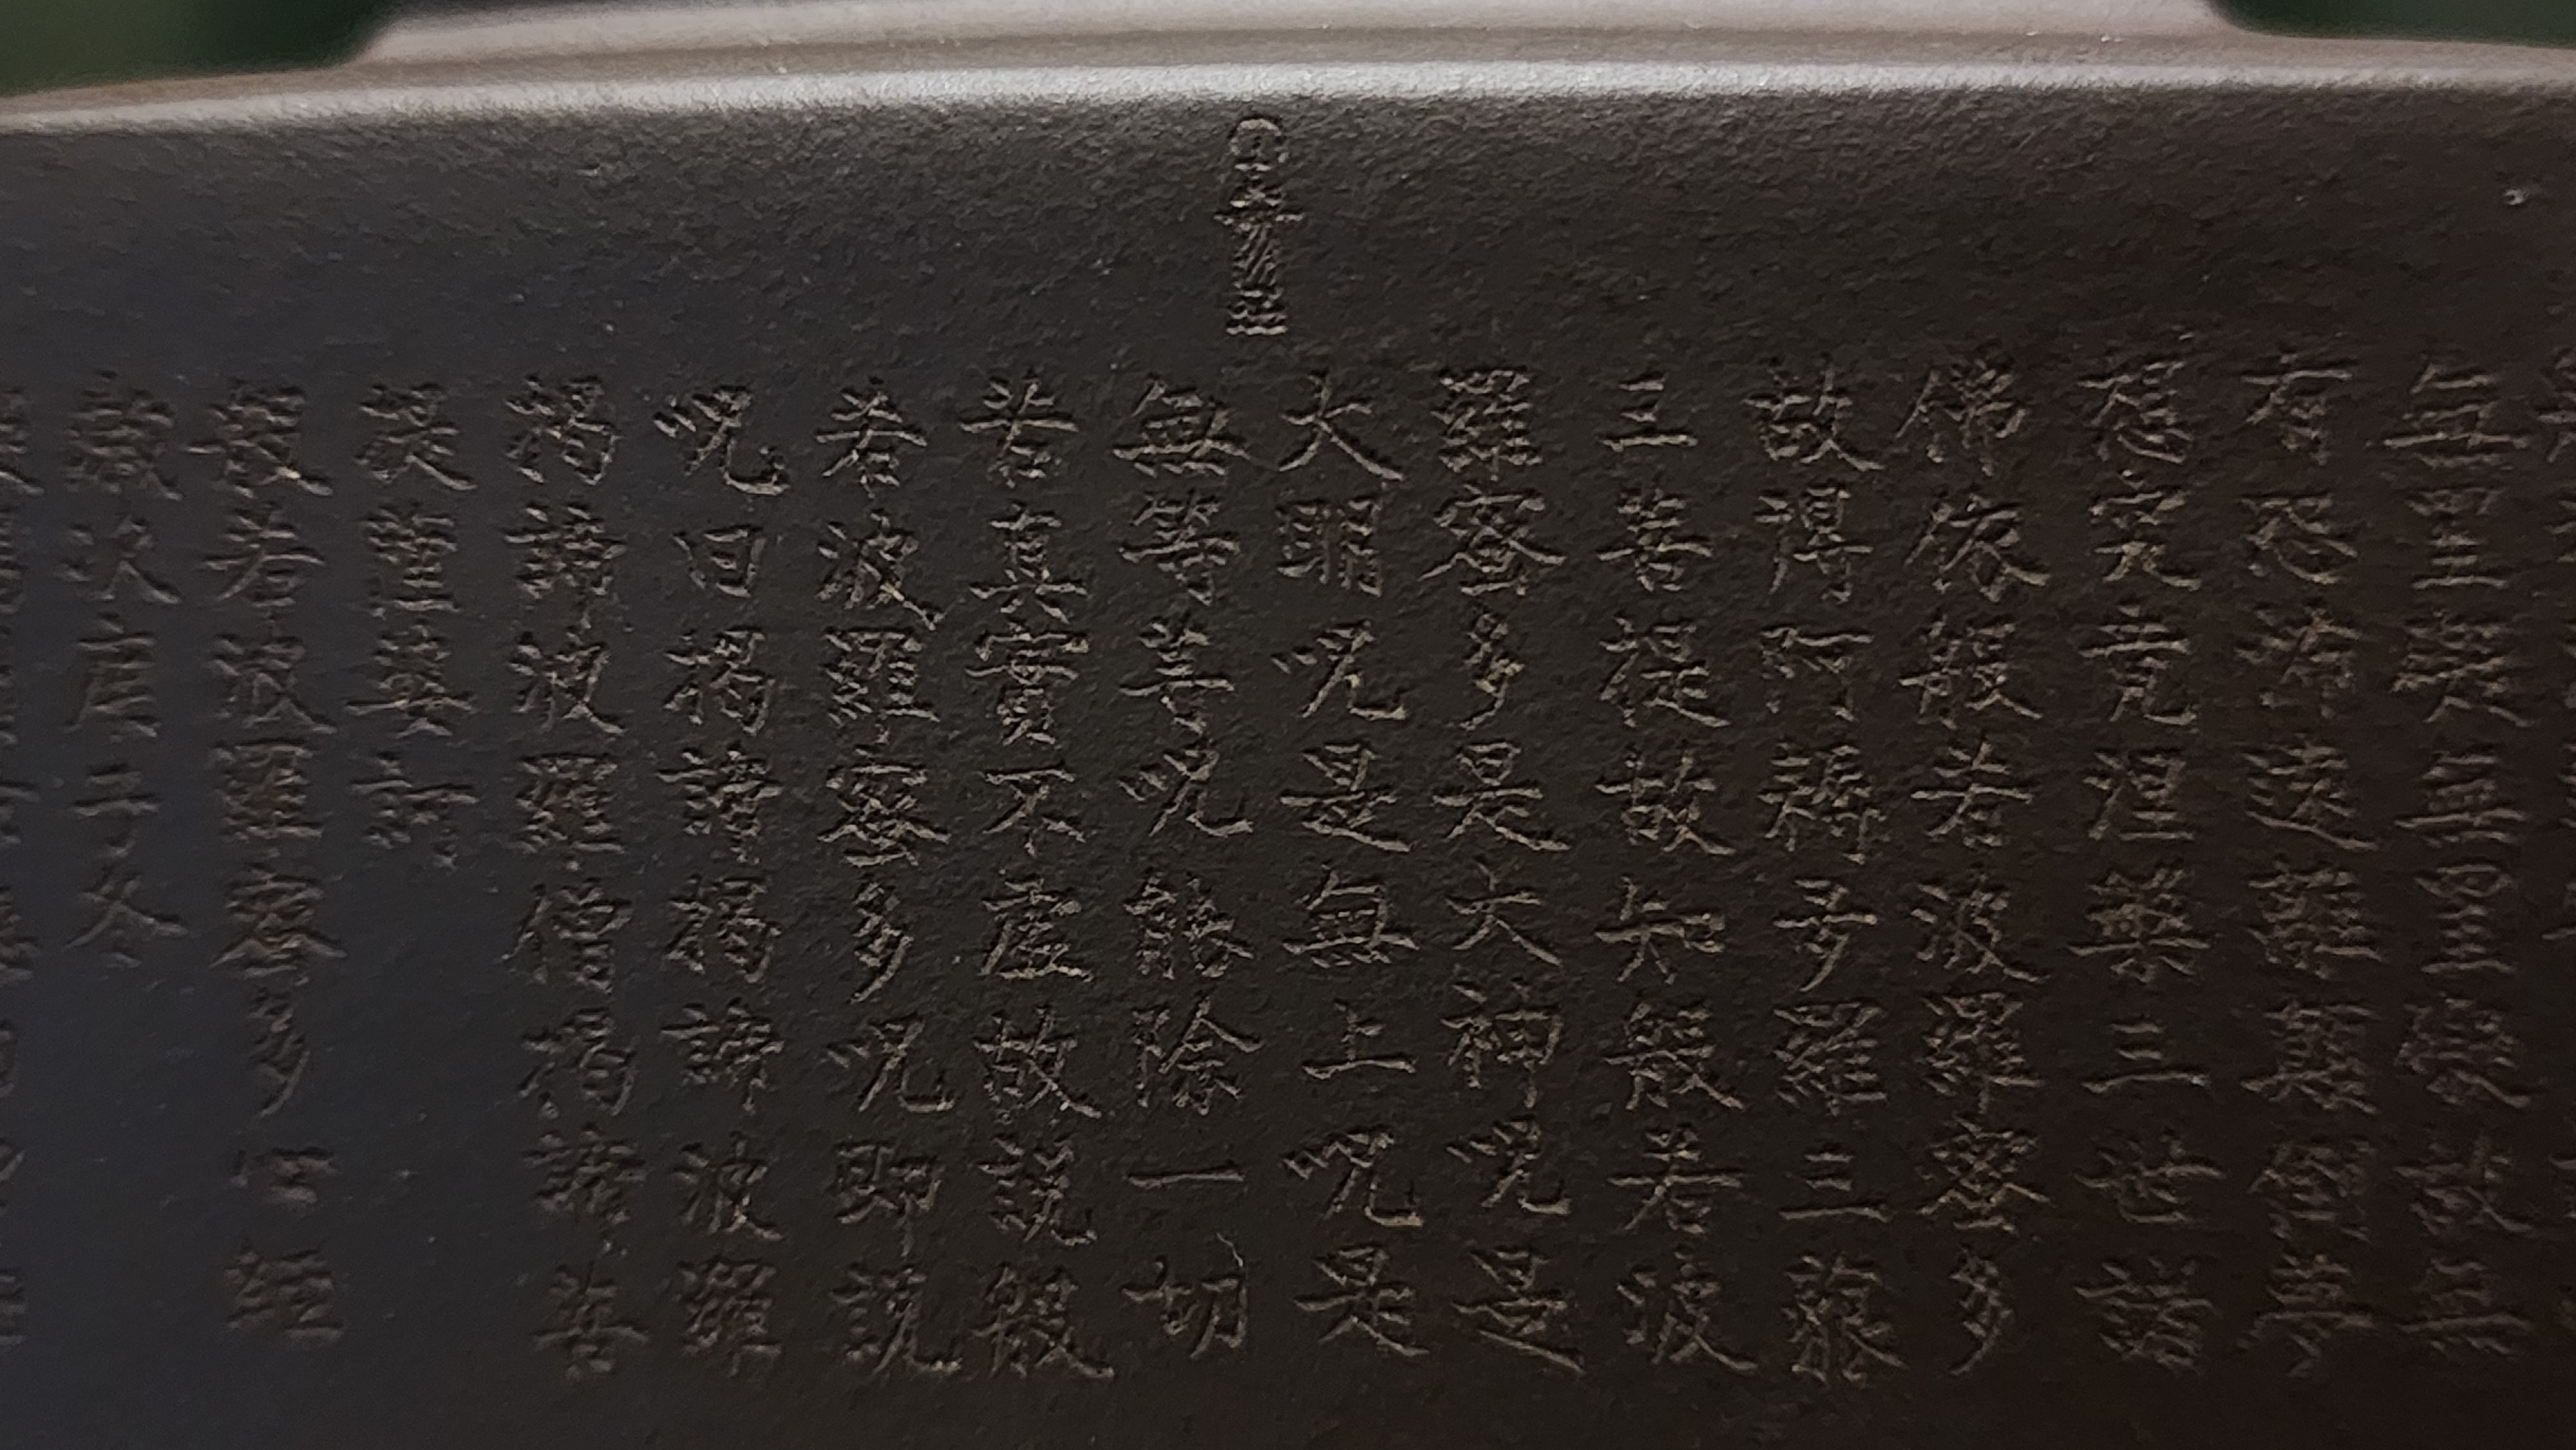 無罣礙無罣礙故無
有恐怖遠離顛倒夢
想究竟涅槃三世諸
佛依般若波羅蜜多
故得阿耨多羅三藐
三菩提故知般若波
羅蜜多是大神呪是
大明呪是無上呪是
無等等呪能除一切
苦真實不虛故說般
若波羅蜜多呪即說
呪曰揭諦揭諦波羅
揭諦波羅僧揭諦菩
提薩婆訶
般若波羅蜜多心經
歲次庚子冬